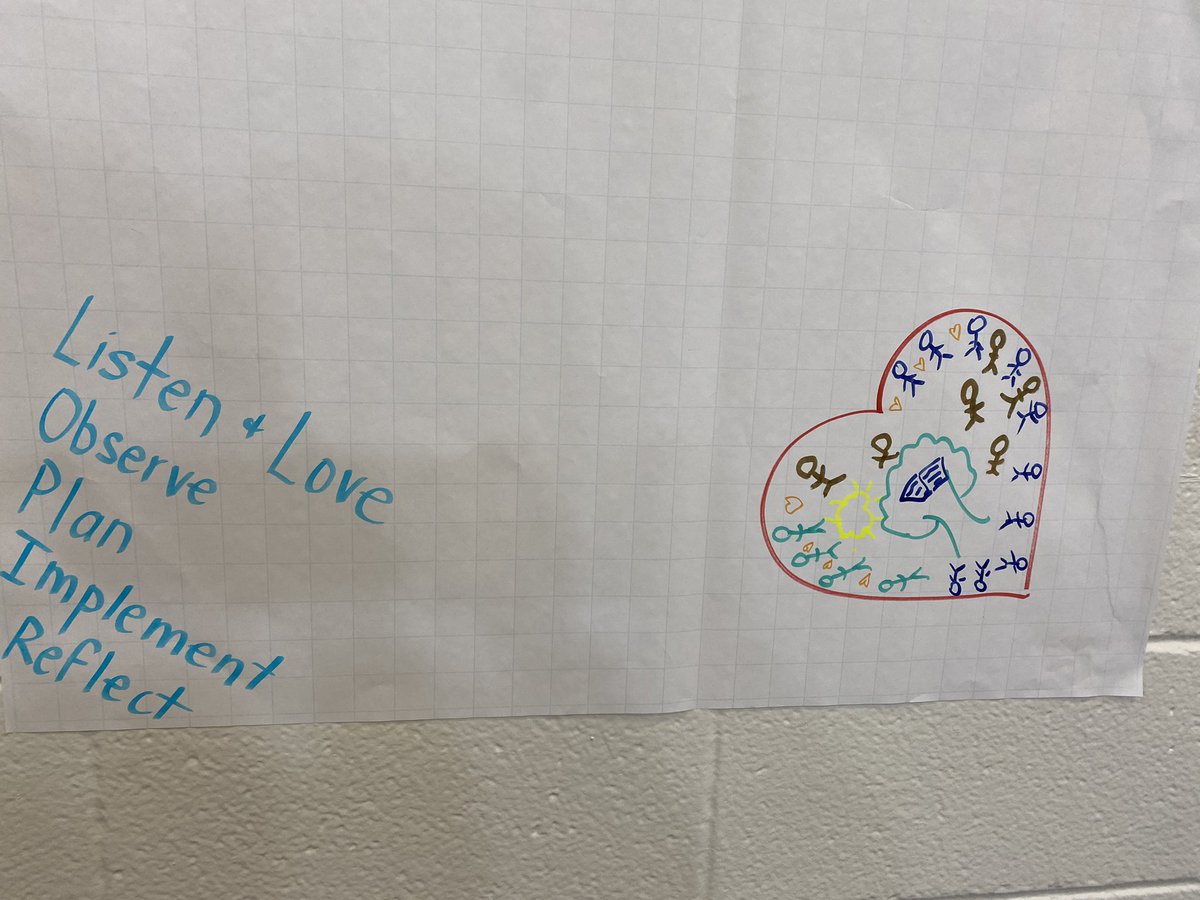 Listen & Love
Observe
Plan
Implement
Reflect